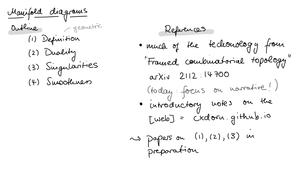 Manifold diagrams
Outline
geometric
(1) Definition
(2) Duality
(3) Singularities
(4) Smoothness
References
• much of the technology from
"Framed combinatorial topology"
arXiv 2112.14700
(today focus on narrative!)
• introductory notes on the
[web] = cxdorn.github.io
⇝ papers on (1), (2), (3) in
preparation